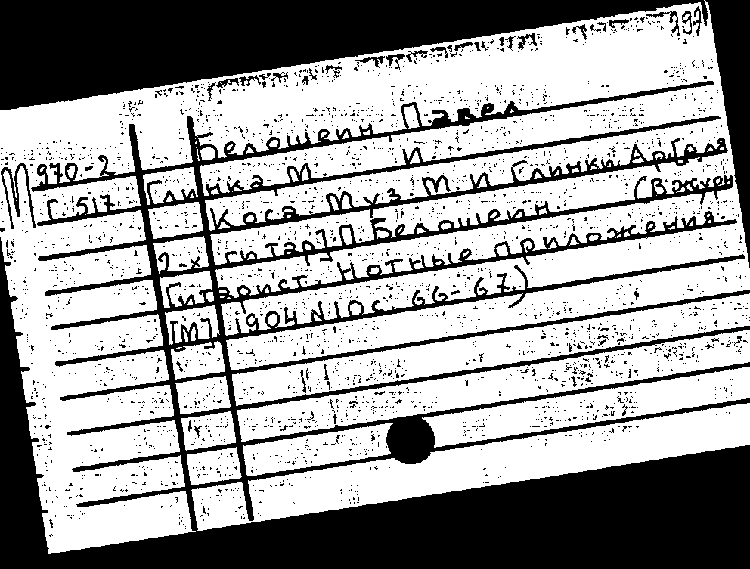 297
Белошеин, Павел
М 970-2 Глинка, М. И.
Г. 517 Коса. Муз. М. И Глинки. Ар. [для
2-х гитар]. П. Белошеин. (В журн
Гитарист. Нотные приложения.
[М]. 1904 N 10 с. 66-67.)